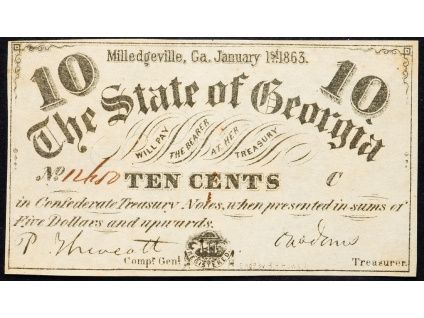 Milledgeville, Ga. January 1st 1863.
10 10
The State of Georgia
WILL PAY THE BEARER AT HER TREASURY
No TEN CENTS C
in Confederate Treasury Notes, when presented in sums of
Five Dollars and upwards.
Compt. Genl. REGISTERED Treasurer.